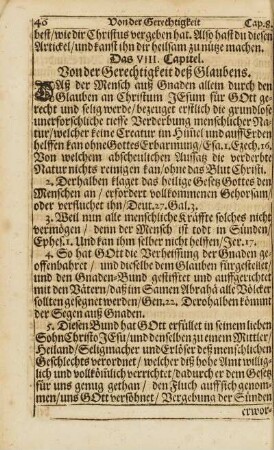 46 Von der Gerechtigkeit Cap. 8.
hest / wie dir Christus vergeben hat. Also hast du diesen
Artickel / und kanst ihn dir heilsam zu nütze machen.
Das VIII. Capitel.
Von der Gerechtigkeit deß Glaubens.
DAß der Mensch auß Gnaden allein durch den
Glauben an Christum JEsum für GOtt ge-
recht und selig werde / bezeuget erstlich die grundlose
unerforschliche tieffe Verderbung menschlicher Na-
tur / welcher keine Creatur im Him̃el und auff Erden
helffen kan ohne Gottes Erbarmung / Esa. 1. Ezech. 16.
Von welchem abscheulichen Aussatz die verderbte
Natur nichts reinigen kan / ohne das Blut Christi.
2. Derhalben klaget das heilige Gesetz Gottes den
Menschen an / erfordert vollkommenen Gehorsam /
oder verfluchet ihn / Deut. 27. Gal. 3.
3. Weil nun alle menschliche Kräffte solches nicht
vermögen / denn der Mensch ist todt in Sünden /
Ephes. 1. Und kan ihm selber nicht helffen / Jer. 17.
4. So hat GOtt die Verheissung der Gnaden ge-
offenbahret / und dieselbe dem Glauben fürgestellet /
und den Gnaden-Bund gestifftet und auffgerichtet
mit den Vätern / daß im Samen Abrahä alle Völcker
sollten gesegnet werden / Gen. 22. Derohalben kömmt
der Segen auß Gnaden.
5. Diesen Bund hat GOtt erfüllet in seinem lieben
Sohn Christo JEsu / und denselben zu einem Mittler /
Heiland / Seligmacher und Erlöser deß menschlichen
Geschlechts verordnet / welcher diß hohe Amt willig-
lich und vollköm̃lich verrichtet / dadurch er dem Gesetz
für uns genug gethan / den Fluch auff sich genom-
men / uns GOtt versöhnet / Vergebung der Sünden
erwor-